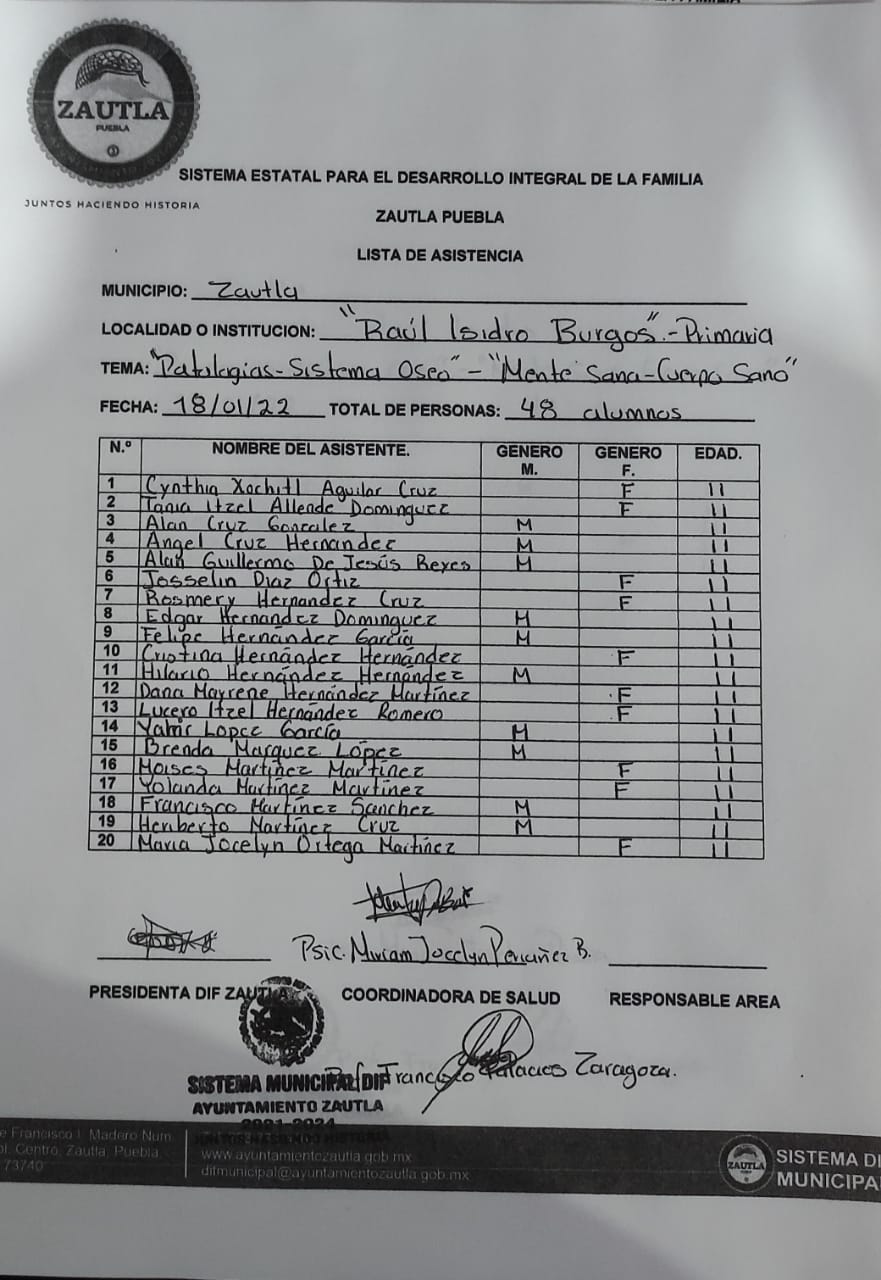 ZAUTLA
PUEBLA
JUNTOS HACIENDO HISTORIA
SISTEMA ESTATAL PARA EL DESARROLLO INTEGRAL DE LA FAMILIA
ZAUTLA PUEBLA
LISTA DE ASISTENCIA
MUNICIPIO: Zautla
LOCALIDAD O INSTITUCION: "Raúl Isidro Burgos".-Primaria
TEMA: "Patologias-Sistema Oseo" - "Mente Sana-Cuerpo Sano"
FECHA: 18/01/22 TOTAL DE PERSONAS: 48 alumnos
N.º NOMBRE DEL ASISTENTE. GENERO M. GENERO F. EDAD.
1 Cynthia Xochitl Aguilar Cruz F 11
2 Tania Itzel Allende Dominguez F 11
3 Alan Cruz Gonzalez M 11
4 Angel Cruz Hernandez M 11
5 Alan Guillermo De Jesús Reyes M 11
6 Josselin Diaz Ortiz F 11
7 Rosmery Hernandez Cruz F 11
8 Edgar Hernandez Dominguez M 11
9 Felipe Hernández García M 11
10 Cristina Hernández Hernández F 11
11 Hilario Hernández Hernández M 11
12 Dana Mayrene Hernández Martínez F 11
13 Lucero Itzel Hernández Romero F 11
14 Yahir Lopez García M 11
15 Brenda Marquez López M 11
16 Moises Martínez Martínez F 11
17 Yolanda Martínez Martínez F 11
18 Francisco Martínez Sanchez M 11
19 Heriberto Martínez Cruz M 11
20 Maria Jocelyn Ortega Martínez F 11
Psic. Miriam Jocelyn B.
PRESIDENTA DIF ZAUTLA COORDINADORA DE SALUD RESPONSABLE AREA
Francisco Palacios Zaragoza.
SISTEMA MUNICIPAL DIF
AYUNTAMIENTO ZAUTLA
2021-2024
JUNTOS HACIENDO HISTORIA
e Francisco I. Madero Num.
ol. Centro, Zautla, Puebla.
73740
www.ayuntamientozautla.gob.mx
difmunicipal@ayuntamientozautla.gob.mx
ZAUTLA
SISTEMA DI
MUNICIPA